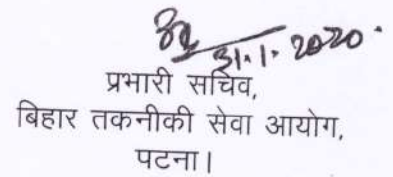 31.1.2020.
प्रभारी सचिव,
बिहार तकनीकी सेवा आयोग,
पटना।